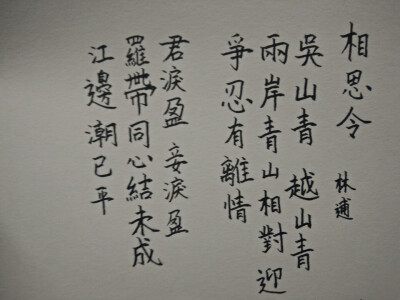 相思令 林逋
吳山青 越山青
兩岸青山相對迎
爭忍有離情
君淚盈 妾淚盈
羅帶同心結未成
江邊潮已平